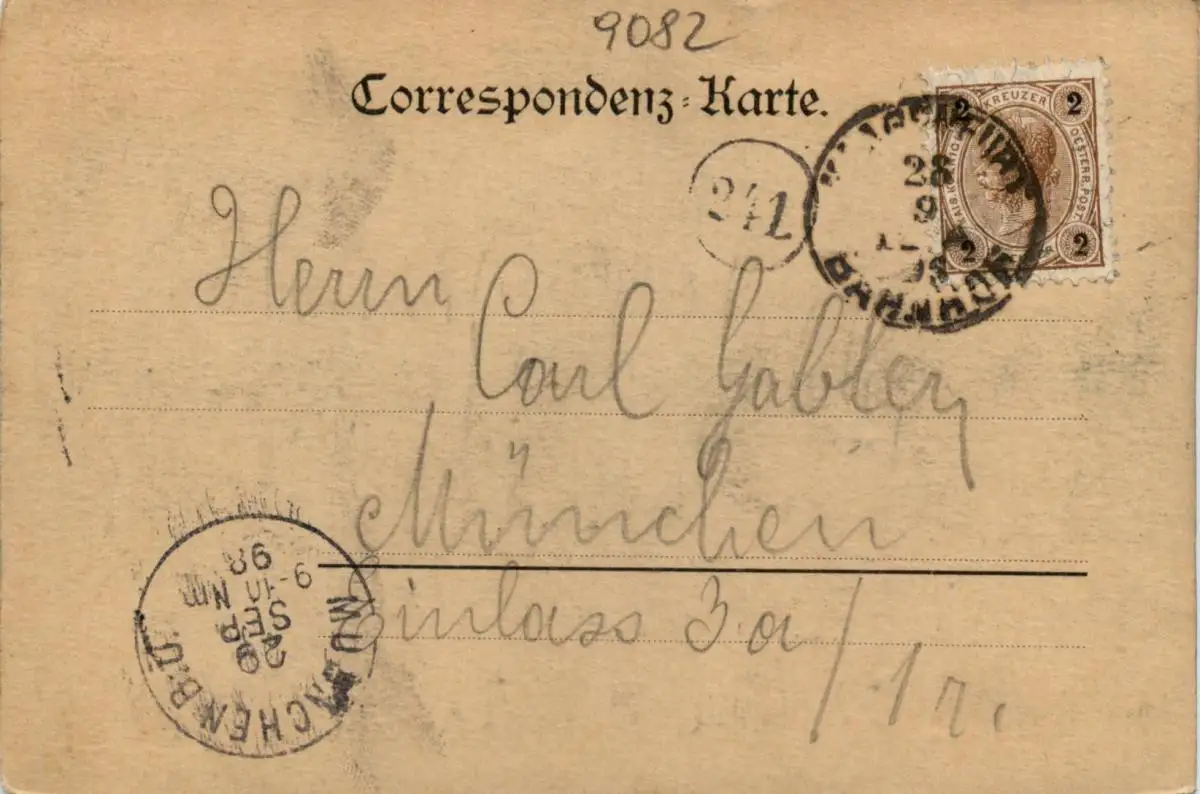 9082
Correspondenz-Karte.
2 KREUZER 2
KAIS. KÖNIGL. OESTERR. POST.
2 2
28
9
98
BAHNHOF
241
Herrn
Carl Gabler,
München
Einlass 3a/1r.
MUENCHEN B.D.
29
SEP
9-10 NM
98